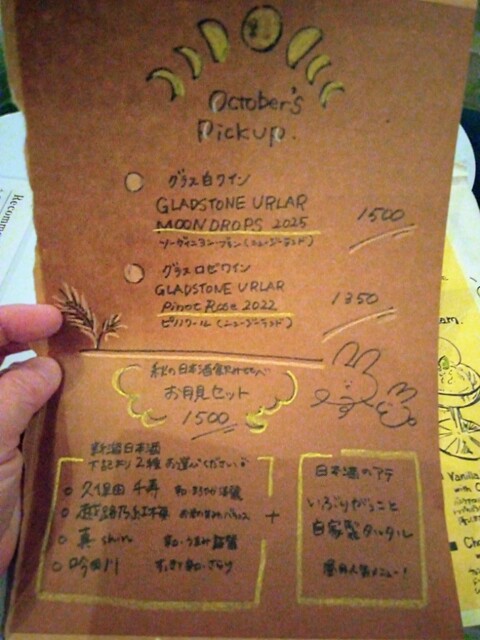 October's
Pickup.
グラス白ワイン
GLADSTONE URLAR
MOONDROPS 2025 1500
ソーヴィニヨン・ブラン(ニュージーランド)
グラスロゼワイン
GLADSTONE URLAR
Pinot Rose 2022 1350
ピノノワール(ニュージーランド)
秋の日本酒飲みくらべ
お月見セット
1500
新潟日本酒
下記より2種お選びください
久保田 千寿
越路乃紅梅
真 shin
吟田川
+
日本酒のアテ
いぶりがっこと
自家製タルタル
人気メニュー!
Recomme
Vanilla
with C
Ch